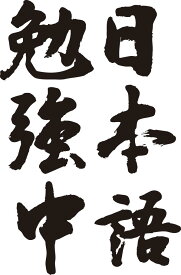 日本語
勉強中